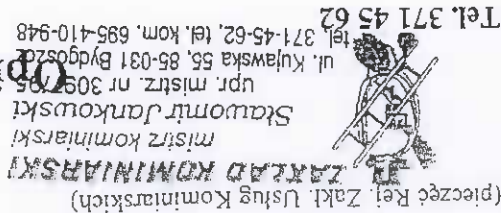 (pieczęć Rej. Zakł. Usług Kominiarskich)
ZAKŁAD KOMINIARSKI
mistrz kominiarski
Sławomir Jankowski
upr. mistrz. nr 309/795
ul. Kujawska 55, 85-031 Bydgoszcz
tel. 371-45-62, tel. kom. 695-410-948
Tel. 371 45 62